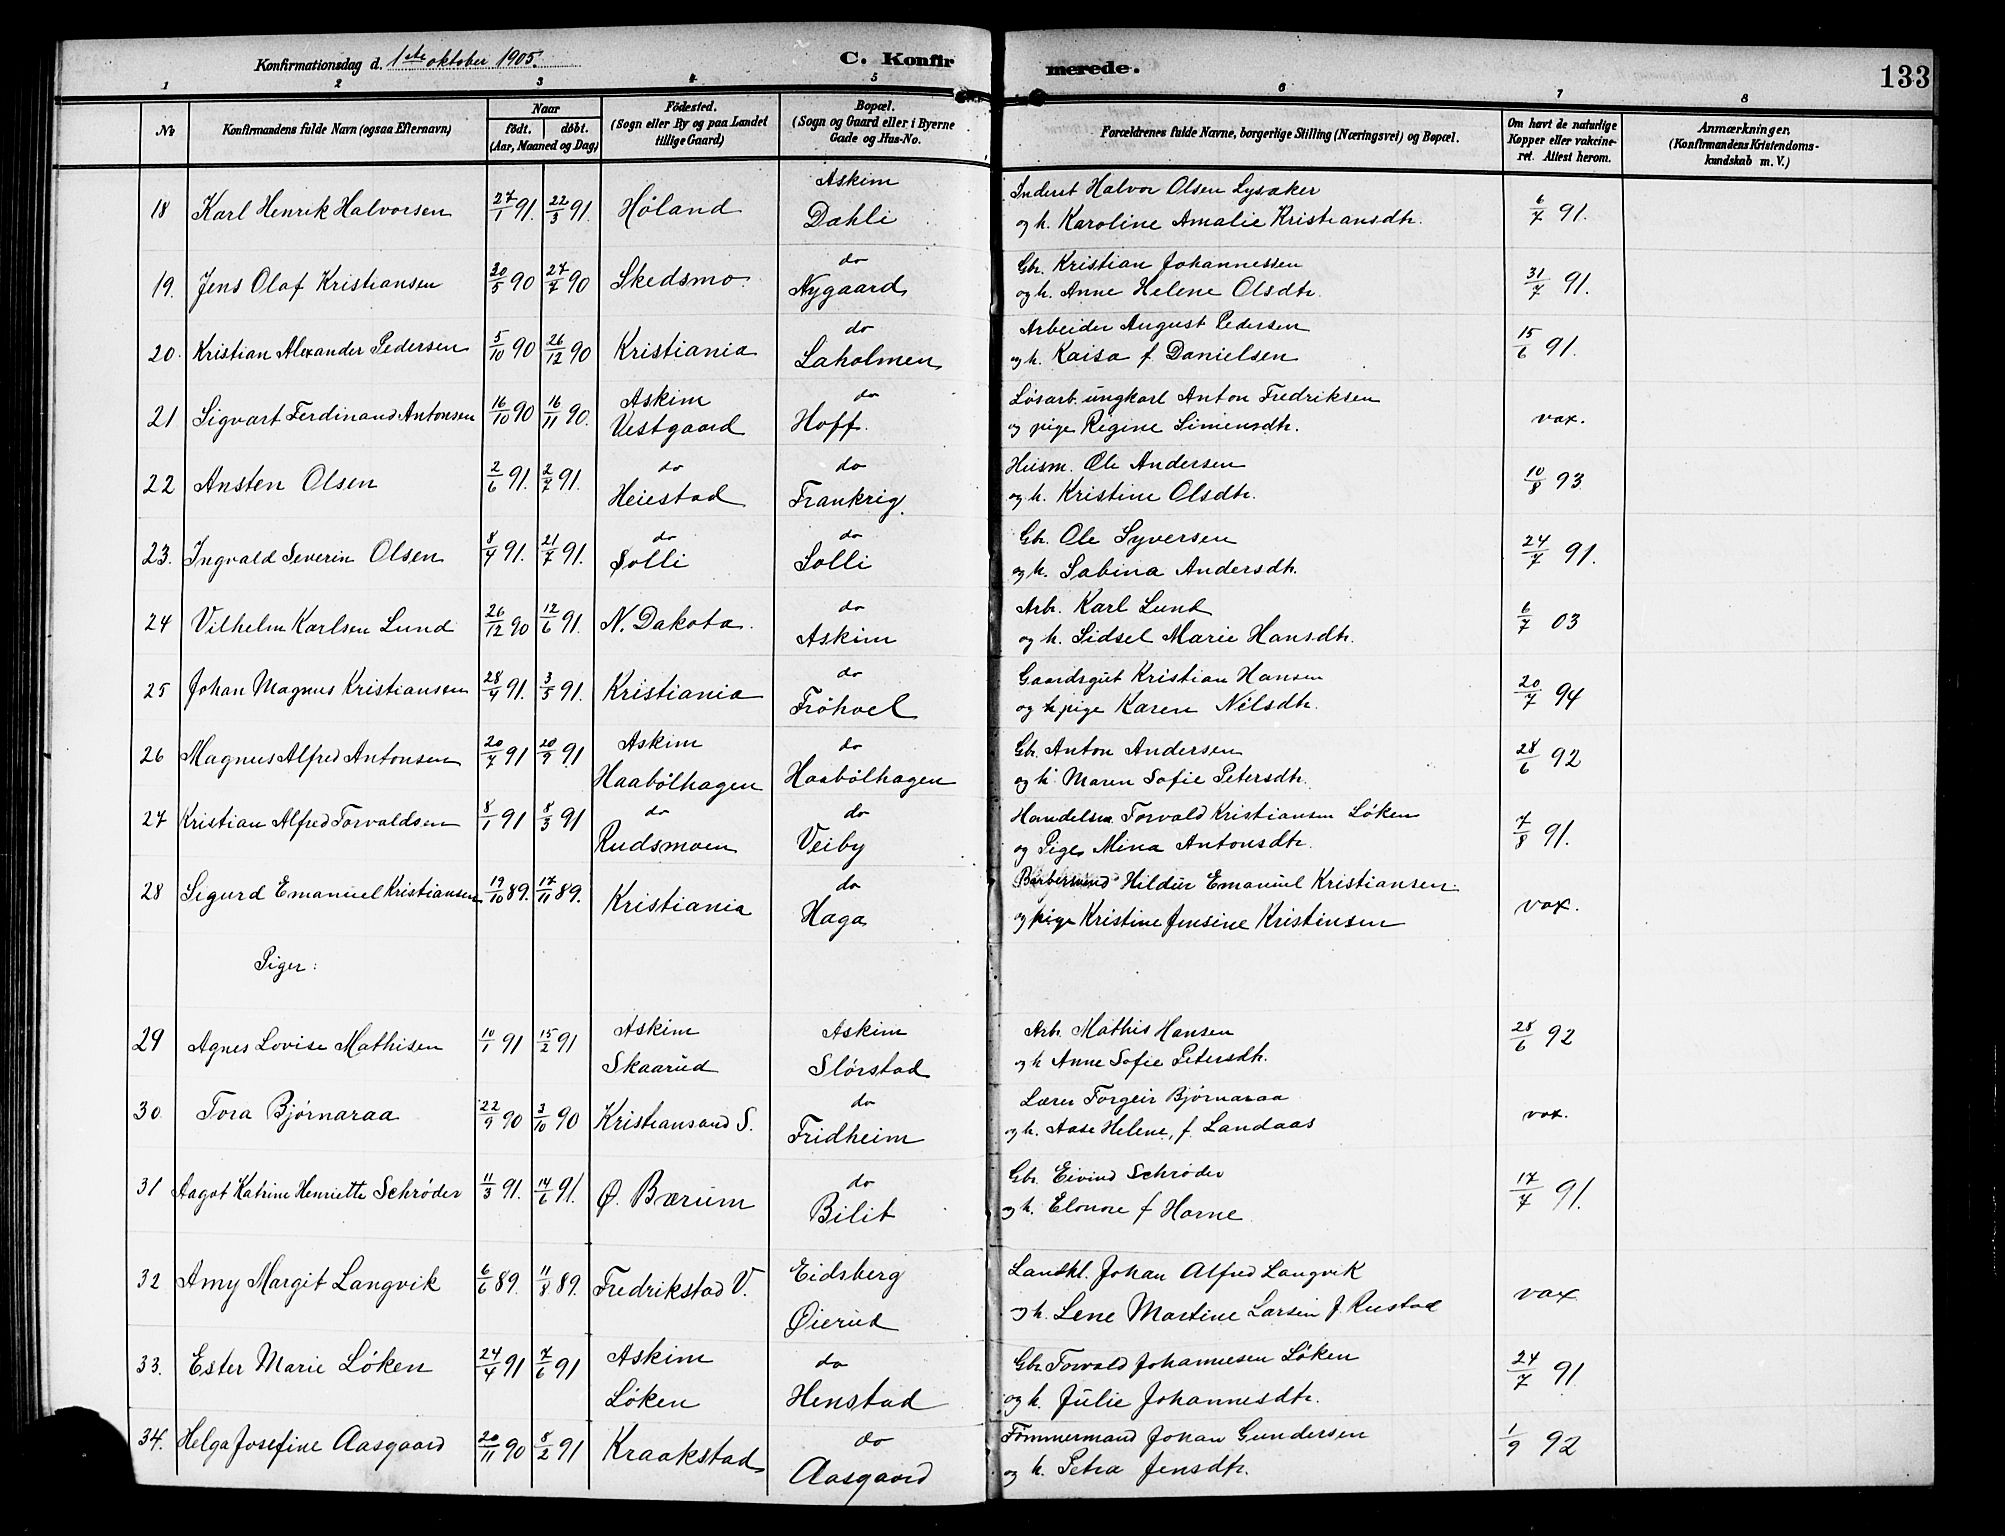 Konfirmationsdag d. 1ste oktober 1905. C. Konfirmerede. 133
1 2 3 4 5 6 7 8
No Konfirmandens fulde Navn (ogsaa Efternavn) Naar født. døbt. (Aar, Maaned og Dag) Fødested. (Sogn eller By og paa Landet tillige Gaard) Bopæl. (Sogn og Gaard eller i Byerne Gade og Hus-No. Forældrenes fulde Navne, borgerlige Stilling (Næringsvei) og Bopæl. Om havt de naturlige Kopper eller vakcineret. Attest herom. Anmærkninger. (Konfirmandens Kristendomskundskab m. V.)
18 Karl Henrik Halvorsen 27/1 91. 22/3 91. Høland Askim Dahli Inderst Halvor Olsen Lysaker
og h. Karoline Amalie Kristiansdtr. 6/7 91.
19. Jens Olaf Kristiansen 30/5 90 27/7 90 Skedsmo do Nygaard Gbr. Kristian Johannessen
og h. Anne Helene Olsdtr. 31/7 91.
20. Kristian Alexander Pedersen 5/10 90 26/12 90 Kristiania do Laholmen Arbeider August Pedersen
og h. Kaisa f. Danielsen 15/6 91.
21 Sigvart Ferdinand Antonsen 16/10 90 16/11 90. Askim Vestgaard do Hoff. Løsarb. ungkarl Anton Fredriksen
og pige Regine Simensdtr. vax.
22 Ansten Olsen 2/6 91. 2/7 91. do Heiestad do Frankrig. Husm. Ole Andersen
og h. Kristine Olsdtr. 10/8 93
23. Ingvald Severin Olsen 8/4 91. 21/7 91. do Solli do Solli Gbr. Ole Syversen
og h. Sabina Andersdtr. 24/7 91.
24 Vilhelm Karlsen Lund 26/12 90 12/6 91. N. Dakota. do Askim Arb. Karl Lund
og h. Sidsel Marie Hansdtr. 6/7 03
25 Johan Magnus Kristiansen 28/4 91. 3/5 91. Kristiania do Frøhoel Gaardsgut Kristian Hansen
og pige Karen Nilsdtr. 20/7 94
26 Magnus Alfred Antonsen 20/7 91 20/9 91 Askim Haabølhagen do Haabølhagen Gbr. Anton Andersen
og h. Maren Sofie Petersdtr. 28/6 92
27 Kristian Alfred Torvaldsen 8/1 91 8/3 91 do Rudsmoen do Veiby Handelsm. Torvald Kristiansen Løken
og Pige Mina Antonsdtr. 7/8 91.
28 Sigurd Emanuel Kristiansen 19/10 89. 17/11 89. Kristiania do Haga Barbersvend Hildur Emanuel Kristiansen.
og pige Kristine Jensine Kristensen vax.
Piger:
29 Agnes Lovise Mathisen 10/1 91 15/2 91 Askim Skaarud Askim Slørstad Arb. Mathis Hansen
og h Anne Sofie Petersdtr. 28/6 92
30 Tora Bjørnaraa 22/9 90 3/10 90 Kristiansand S. do Fridheim Lærer Torgeir Bjørnaraa
og h. Aase Helene, f. Landaas vax.
31 Aagot Katrine Henriette Schrøder 11/3 91. 14/6 91. Ø. Bærum do Bilit Gbr. Eivind Schrøder
og h. Elonore f Horne 17/7 91.
32 Amy Margit Langvik 6/6 89. 11/8 89. Fredrikstad V. Eidsberg Øierud Landkl. Johan Alfred Langvik
og h. Lene Martine Larsen f. Rustad vax
33. Ester Marie Løken 24/4 91 7/6 91 Askim Løken do Henstad Gbr Torvald Johannesen Løken
og h. Julie Johannesdtr. 24/7 91
34. Helga Josefine Aasgaard 20/11 90 8/2 91 Kraakstad do Aasgaard Tømmermand Johan Gundersen
og h. Petra Jensdtr. 1/9 92